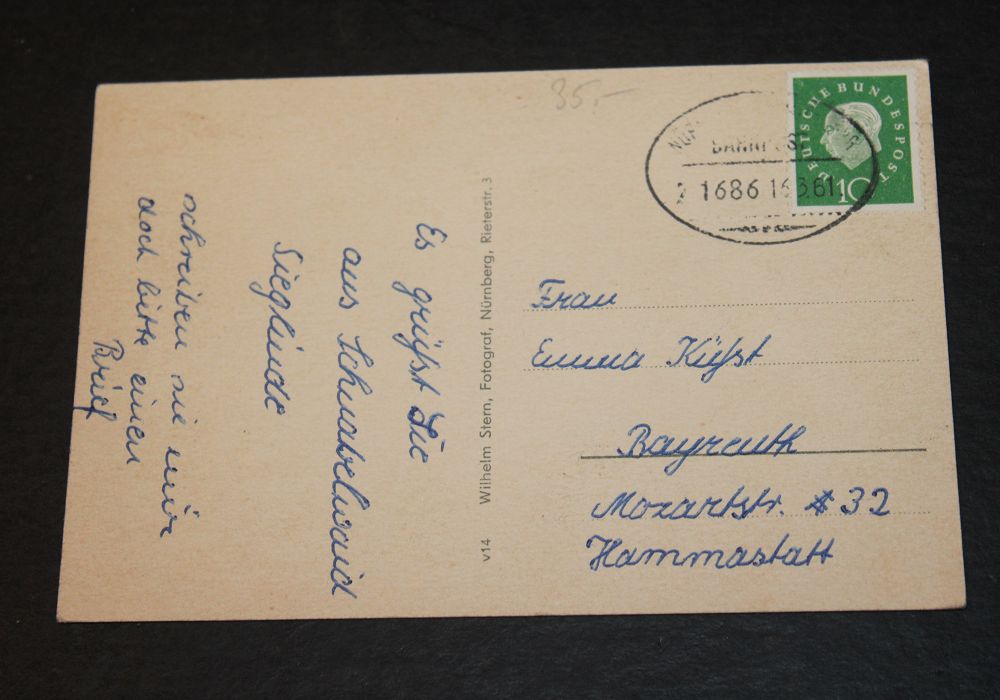 35.-
DEUTSCHE BUNDESPOST
10
BAHNPOST
1686 16.3.61
Es grüßt Sie
aus Schnabelwaid
Sieglinde
schreiben sie mir
doch bitte einen
Brief
v14 Wilhelm Stern, Fotograf, Nürnberg, Rieterstr. 3
Frau
Emma Küfst
Bayreuth
Mozartstr. 32
Hammastatt